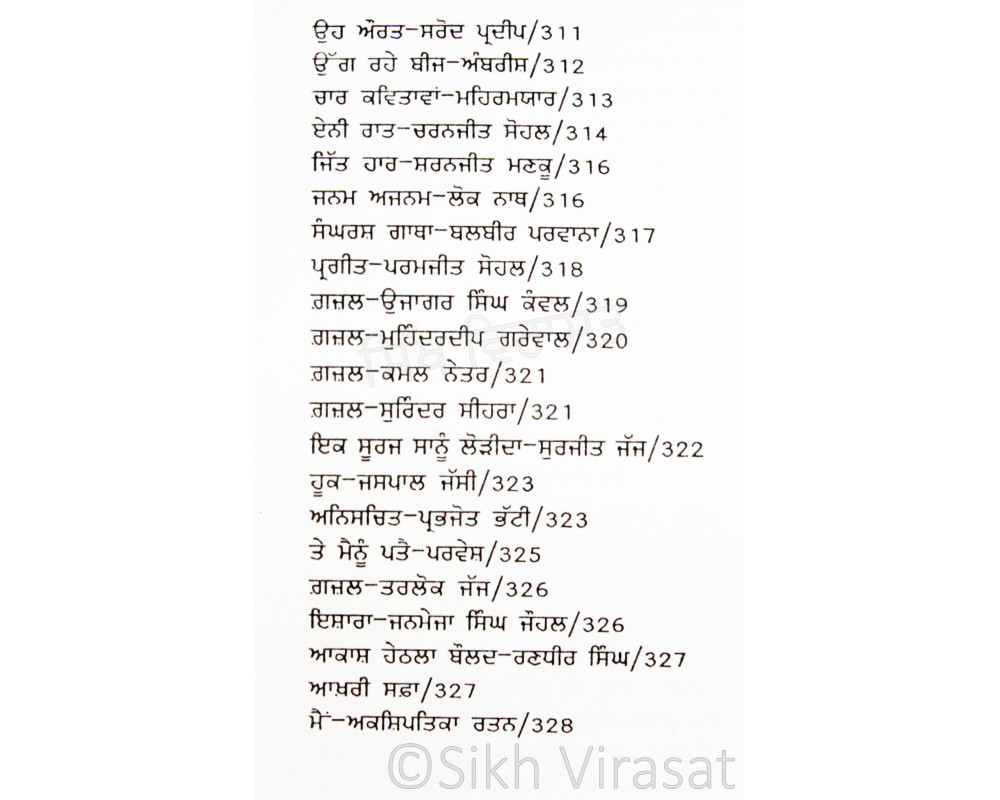 ਉਹ ਔਰਤ-ਸਰੋਦ ਪ੍ਰਦੀਪ/311
ਉੱਗ ਰਹੇ ਬੀਜ-ਅੰਬਰੀਸ਼/312
ਚਾਰ ਕਵਿਤਾਵਾਂ-ਮਹਿਰਮਯਾਰ/313
ਏਨੀ ਰਾਤ-ਚਰਨਜੀਤ ਸੋਹਲ/314
ਜਿੱਤ ਹਾਰ-ਸ਼ਰਨਜੀਤ ਮਣਕੂ/316
ਜਨਮ ਅਜਨਮ-ਲੋਕ ਨਾਥ/316
ਸੰਘਰਸ਼ ਗਾਥਾ-ਬਲਬੀਰ ਪਰਵਾਨਾ/317
ਪ੍ਰਗੀਤ-ਪਰਮਜੀਤ ਸੋਹਲ/318
ਗ਼ਜ਼ਲ-ਉਜਾਗਰ ਸਿੰਘ ਕੰਵਲ/319
ਗ਼ਜ਼ਲ-ਮੁਹਿੰਦਰਦੀਪ ਗਰੇਵਾਲ/320
ਗ਼ਜ਼ਲ-ਕਮਲ ਨੇਤਰ/321
ਗ਼ਜ਼ਲ-ਸੁਰਿੰਦਰ ਸੀਹਰਾ/321
ਇਕ ਸੂਰਜ ਸਾਨੂੰ ਲੋੜੀਦਾ-ਸੁਰਜੀਤ ਜੱਜ/322
ਹੂਕ-ਜਸਪਾਲ ਜੱਸੀ/323
ਅਨਿਸਚਿਤ-ਪ੍ਰਭਜੋਤ ਭੱਟੀ/323
ਤੇ ਮੈਨੂੰ ਪਤੈ-ਪਰਵੇਸ਼/325
ਗ਼ਜ਼ਲ-ਤਰਲੋਕ ਜੱਜ/326
ਇਸ਼ਾਰਾ-ਜਨਮੇਜਾ ਸਿੰਘ ਜੌਹਲ/326
ਆਕਾਸ਼ ਹੇਠਲਾ ਬੌਲਦ-ਰਣਧੀਰ ਸਿੰਘ/327
ਆਖ਼ਰੀ ਸਫ਼ਾ/327
ਮੈਂ-ਅਕਸ਼ਿਪਤਿਕਾ ਰਤਨ/328
ਸਿੱਖ ਵਿਰਾਸਤ
©Sikh Virasat